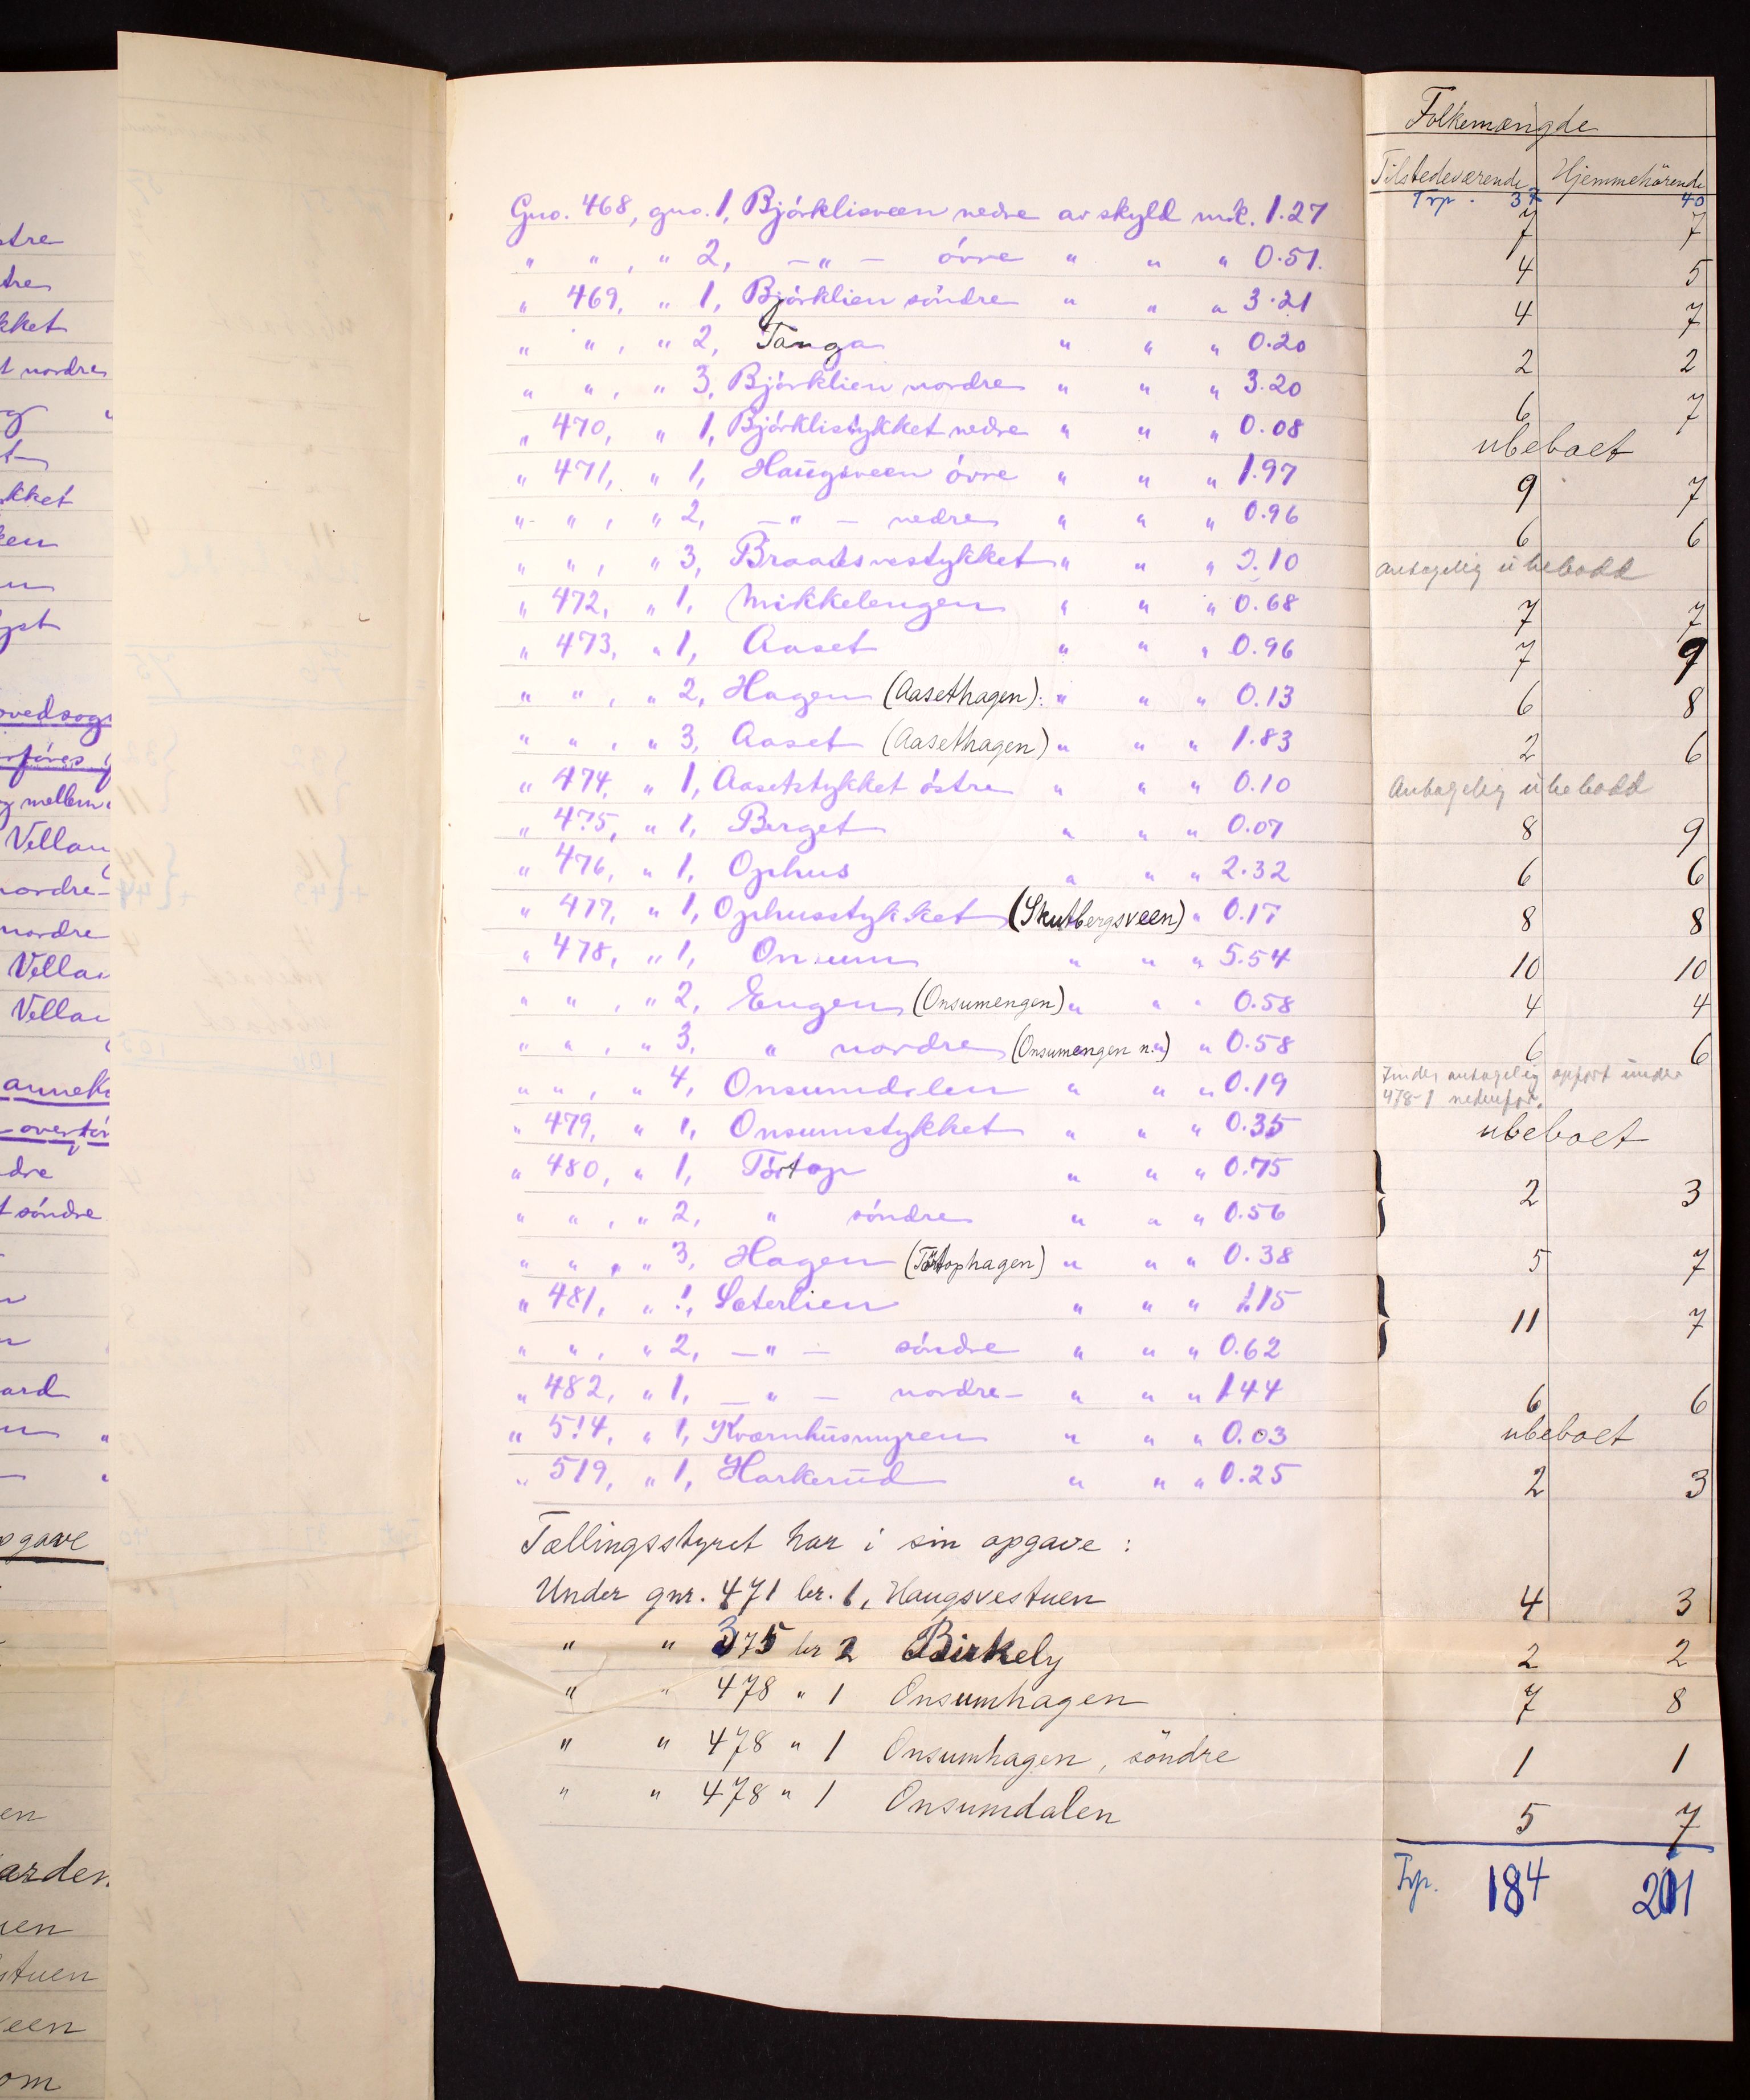 Folkemængde
Tilstedeværende Hjemmehörende
Trp. 37 40
Gno. 468, gno. 1, Björklisveen nedre av skyld mk. 1.27 7 7
" " , " 2, —"— övre " " " 0.51. 4 5
" 469, " 1, Björklien söndre " " " 3.21 4 7
" " , " 2, Tanga " " " 0.20 2 2
" " , " 3, Björklien nordre " " " 3.20 6 7
" 470, " 1, Björklistykket nedre " " " 0.08 ubeboet
" 471, " 1, Haugsveen övre " " " 1.97 9 7
" " , " 2, —"— nedre " " " 0.96 6 6
" " , " 3, " " " 2.10 antagelig ubebodd
" 472, " 1, Mikkelengen " " " 0.68 7 7
" 473, " 1, Aaset " " " 0.96 7 9
" " , " 2, Hagen (Aasethagen). " " " 0.13 6 8
" " , " 3, Aaset (Aasethagen) " " " 1.83 2 6
" 474, " 1, Aasetstykket östre " " " 0.10 Antagelig ubebodd
" 475, " 1, Berget " " " 0.07 8 9
" 476, " 1, Ophus " " " 2.32 6 6
" 477, " 1, Ophusstykket (Skutbergsveen) " 0.17 8 8
" 478, " 1, Onsum " " " 5.54 10 10
" " , " 2, Engen (Onsumengen) " " " 0.58 4 4
" " , " 3, " nordre (Onsumengen n.) " " 0.58 6 6
" " , " 4, Onsumdalen " " " 0.19 Findes antagelig opført under
478-1 nedenfor.
" 479, " 1, Onsumstykket " " " 0.35 ubeboet
" 480, " 1, Törtop " " " 0.75
" " , " 2, " söndre " " " 0.56 } 2 3
" " , " 3, Hagen (Törtophagen) " " " 0.38 5 7
" 481, " 1, Sæterlien " " " 1.15
" " , " 2, —"— söndre " " " 0.62 } 11 7
" 482, " 1, —"— nordre " " " 1.44 6 6
" 514, " 1, Kværnhusmyren " " " 0.03 ubeboet
" 519, " 1, Harkerud " " " 0.25 2 3
Tællingsstyret har i sin opgave :
Under gnr. 471 br. 1, Haugsvestuen 4 3
" " 375 br 2 Birkely 2 2
" " 478 " 1 Onsumhagen 7 8
" " 478 " 1 Onsumhagen, söndre 1 1
" " 478 " 1 Onsumdalen 5 7
Trp. 184 201
stre
kket
t nordre
kket
Vellan
nordre
nordre
Vella
Vella
annek
dre
t söndre
gave
en
stuen
een
om